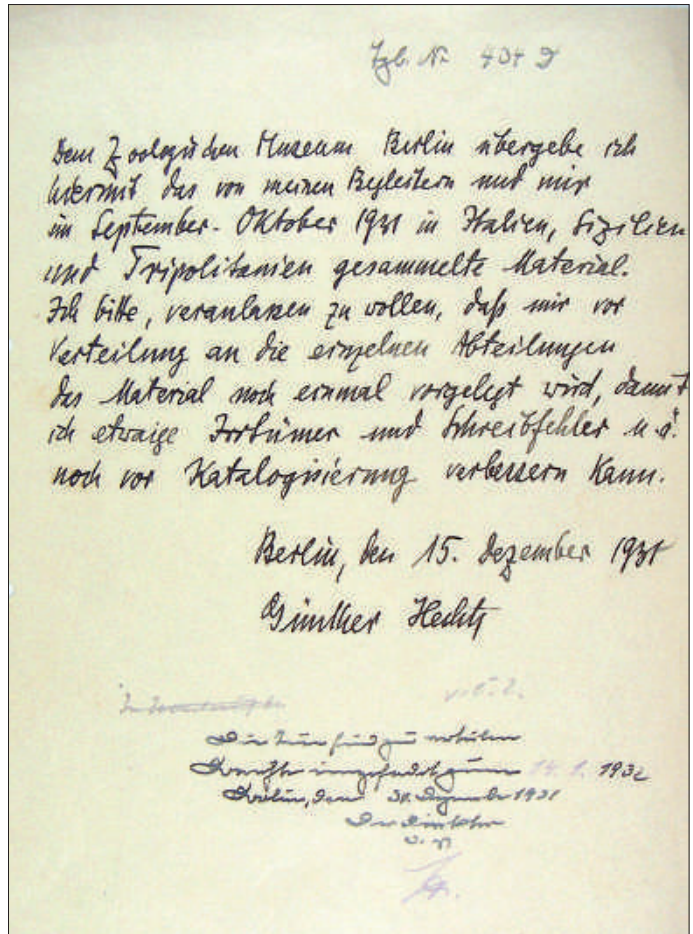 Tgb. No 404 D
Dem Zoologischen Museum Berlin übergebe ich
hiermit das von meinen Begleitern und mir
im September-Oktober 1931 in Italien, Sizilien
und Tripolitanien gesammelte Material.
Ich bitte, veranlassen zu wollen, daß mir vor
Verteilung an die einzelnen Abteilungen
das Material noch einmal vorgelegt wird, damit
ich etwaige Irrtümer und Schreibfehler u. ä.
noch vor Katalogisierung verbessern kann.
Berlin, den 15. Dezember 1931
Günther Hecht
Die Tiere sind zu verteilen
14. 1. 1932
Berlin, den 30. Dezember 1931
Der Direktor